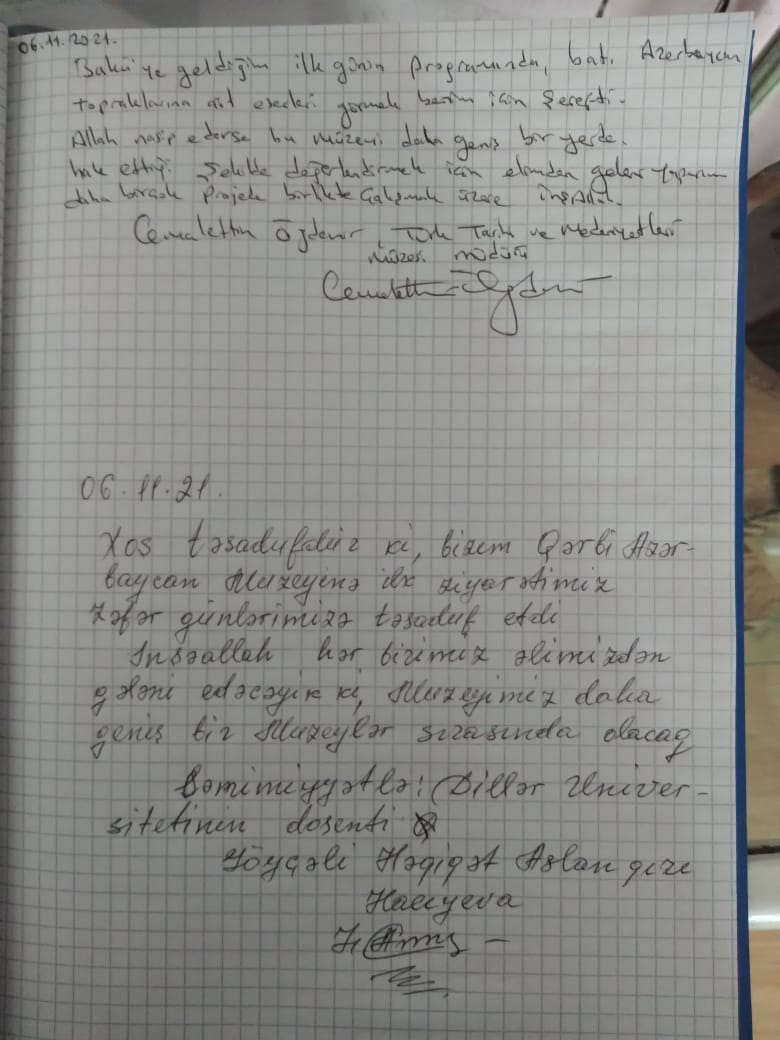 06.11.2021.
Bakü'ye geldiğim ilk günün programında, batı Azerbaycan
topraklarına ait eserleri görmek benim için şerefti.
Allah nasip ederse bu müzeyi daha geniş bir yerde.
hak ettiği şekilde değerlendirmek için elimden geleni yaparım
daha birçok projede birlikte çalışmak üzere inşallah.
Cemalettin Türk Tarihi ve Medeniyetleri
Müzesi müdürü
06.11.21.
Xos təsadufdür ki, bizim Qərbi Azər-
baycan Muzeyinə ilk ziyarətimiz
zəfər günlərimizə təsaduf etdi
Inşəallah hər birimiz əlimizdən
gələni edəcəyik ki, Muzeyimiz daha
geniş bir Muzeylər sırasında olacag
Səmimiyyətlə: Dillər Univer-
sitetinin dosenti
Göyçəli Həqiqət Aslan qızı
Hacıyeva